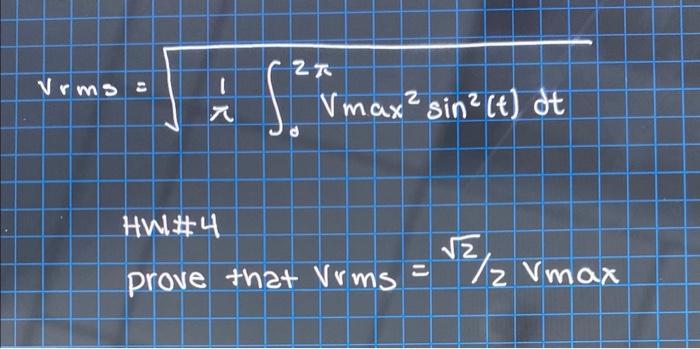 Vrms = √ 1/π ∫₀^2π Vmax² sin²(t) dt
HW#4
prove that Vrms = √2/2 Vmax